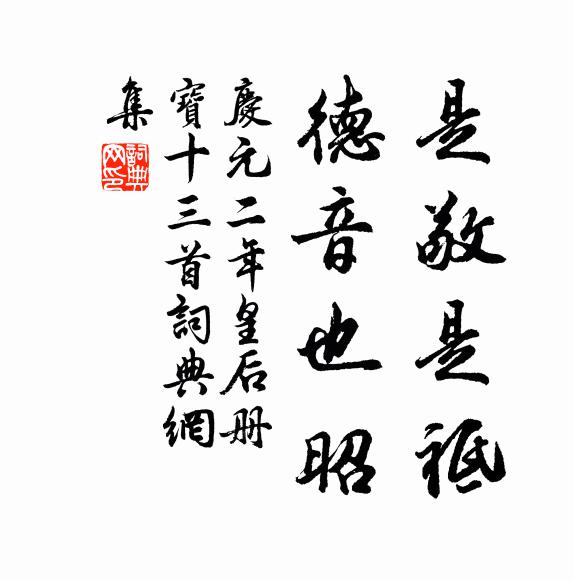 是敬是祗
德音也昭
慶元二年皇后册
寶十三首詞典網
集
詞典网印